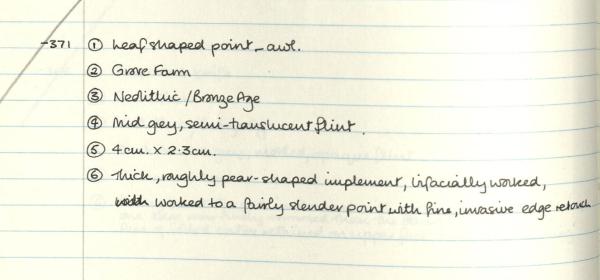 -371 ① Leaf shaped point - awl.
② Grove Farm
③ Neolithic / Bronze Age
④ Mid grey, semi-translucent flint.
⑤ 4 cm. x 2.3 cm.
⑥ Thick, roughly pear-shaped implement, bifacially worked,
worked to a fairly slender point with fine, invasive edge retouch